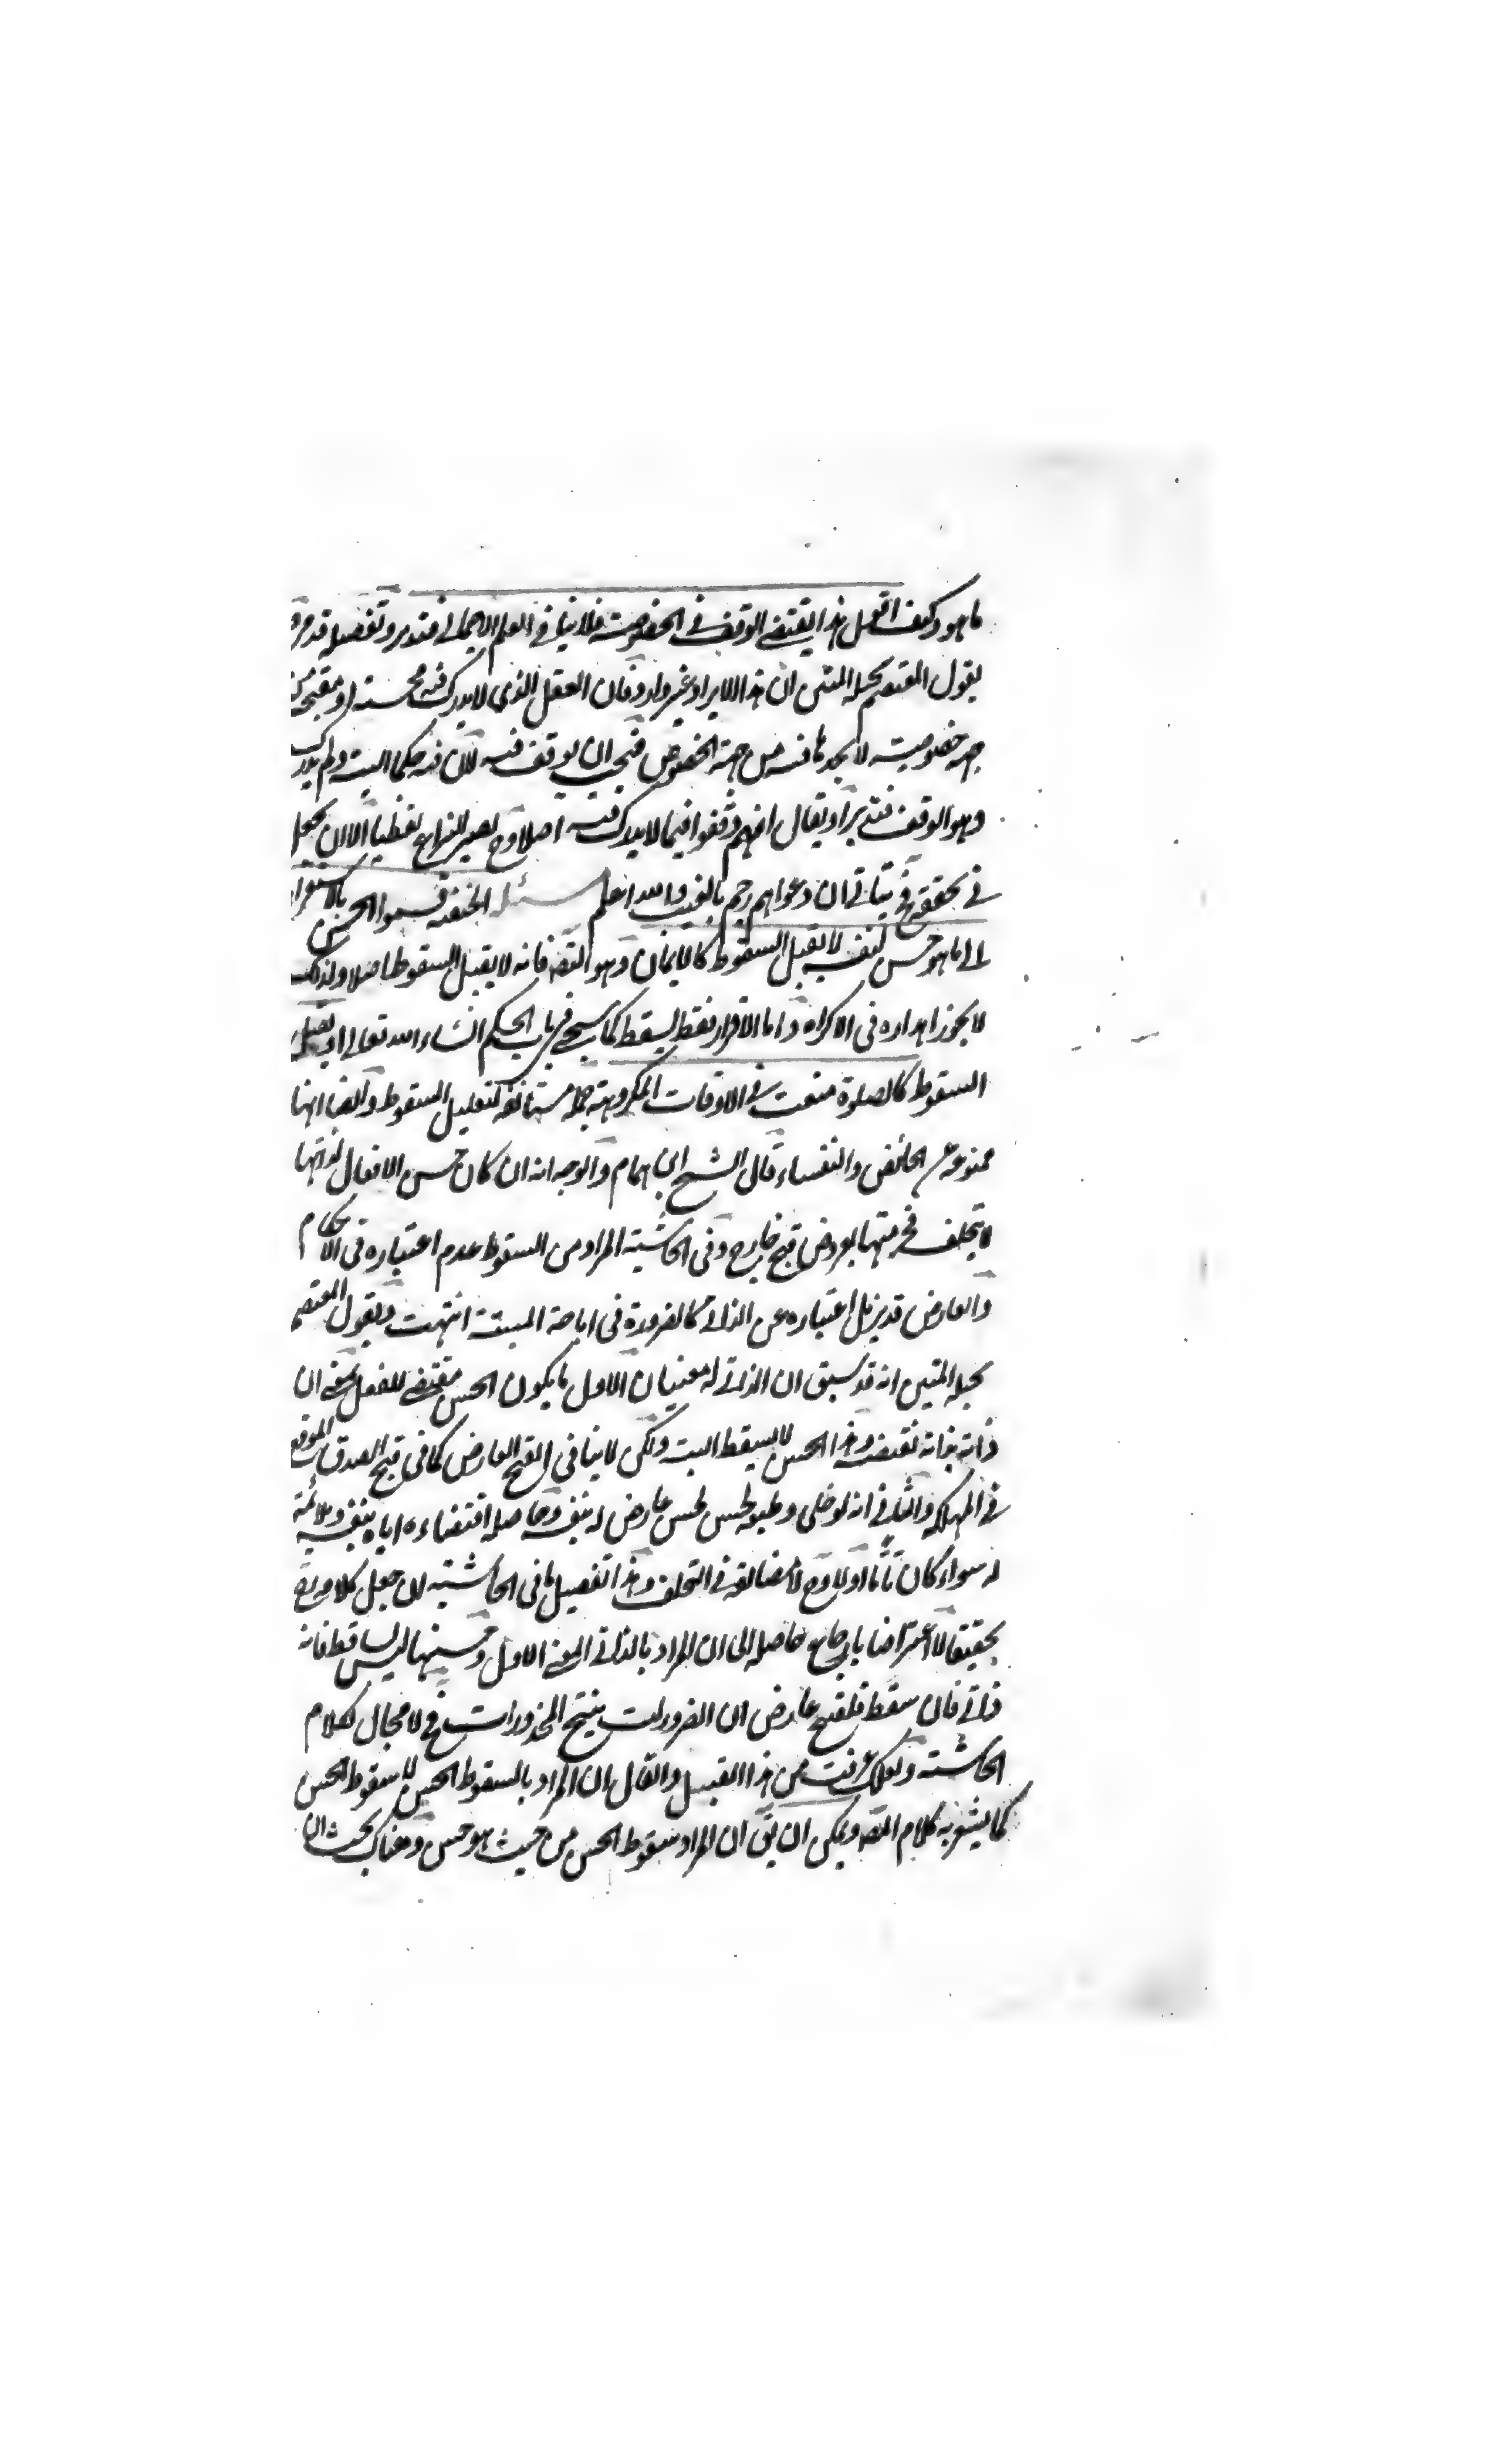 ما هو وكيف اقول هذا يقتضي الوقف في الخصوصية فلا ينافي العلم الاجمالي فتدبر وتفصيله قد مر
يقول المعتصم بحبله المتين ان هذا الايراد غير وارد فان العقل الذي لا يدرك فيه محسنة او مقبحة
جهة خصوصية لا يحد فانه من جهة الخصوص فيجب ان يوقف فيه لان فيه حكما البتة ولم يدرك
وهو الوقف ويقال انهم وقفوا فيما لا يدرك فيه اصلا وح يصير النزاع لفظيا الا ان يحول
في تحقيق ان دعواهم رجم بالغيب والله اعلم مسئلة الحنفية قسموا الحسن بالاستقراء
الى ما هو حسن لنفسه لا يقبل السقوط كالايمان وهو التصـ فانه لا يقبل السقوط اصلا ولذلك
لا يجوز اهداره في الاكراه واما الاقرار فقط يسقط كما سيجئ في باب الحكم انشاء الله تعالى او يقبل
السقوط كالصلوة منعت في الاوقات المكروهة جملة مستانفة لتعليل السقوط وايضا انها
ممنوعة عن الحائض والنفساء قال الشيخ ابن الهمام والوجه انه ان كان حسن الافعال لذاتها
لا يتخلف فحرمتها بعروض قبح خارج وفى الحاشية المراد من السقوط عدم اعتباره فى الاحكام
والعارض قد يزيل اعتباره عن الذات كالضرورة فى اباحة الميتة انتهت ويقول المعتصم
بحبله المتين انه قد سبق ان الذاتي له معنيان الاول ما يكون الحسن مقتضى للفعل بمعنى ان
ذاته بذاته تقتضيه وهذا الحسن لا يسقط البتة ولكن لا ينافي القبح العارض كما فى قبح الصدق الموقع
في المهلكة والثاني انه لو خلى وطبعه لحسن لحسن عارض له بنفسه وحاصله اقتضاءه اياه بنفسه وملائمة
له سواء كان تاما اولا وح لا مضائقة في التخلف وهذا تفصيل ما في الحاشية ان جعل كلامه
تحقيقا لا اعتراضا بارجاع حاصله الى ان المراد بالذاتي المعنى الاول وحسنها ليس بساقط فانه
ذاتي فان سقط فلقبح عارض ان الضرورات يبيح المحذورات فح لا مجال لكلام
الحاشية ولعلك عرفت من هذا القبيل والقال ان المراد بالسقوط الحسن لا سقوط الحسن
كما يشعر به كلام المصـ ويمكن ان يق ان المراد سقوط الحسن من حيث هو حسن وهناك بحث ان